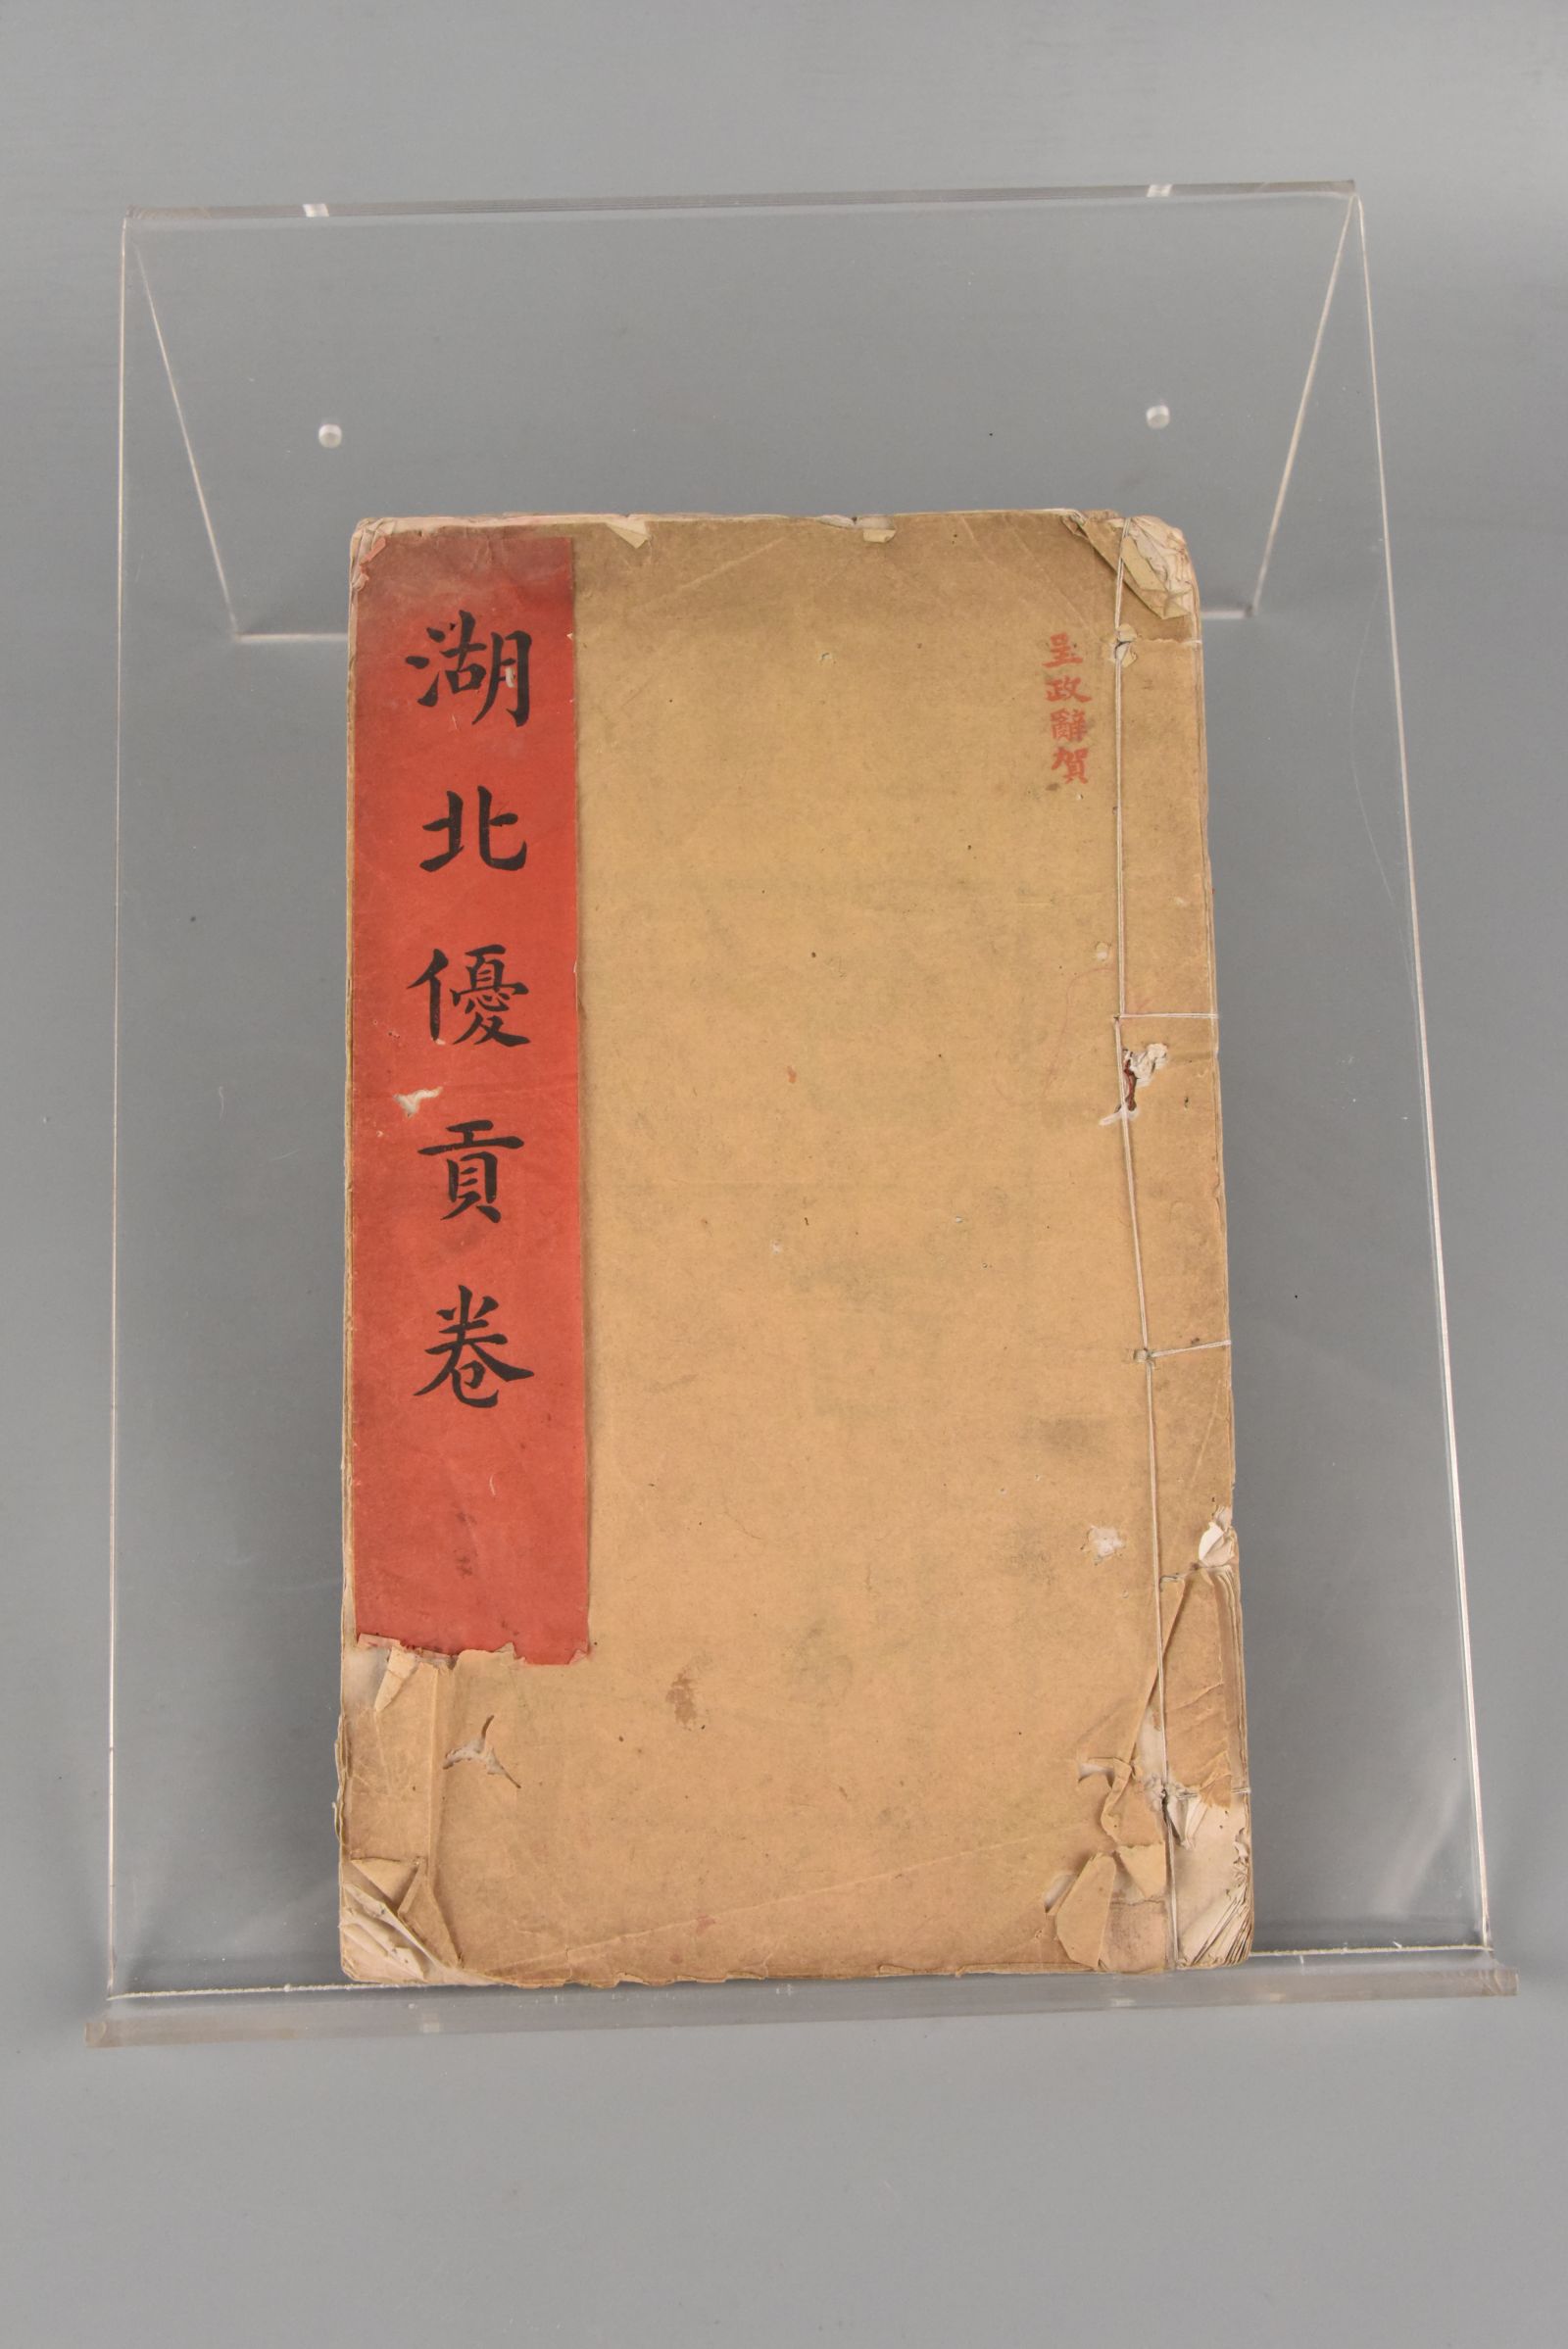 呈政辭賀
湖北優貢卷